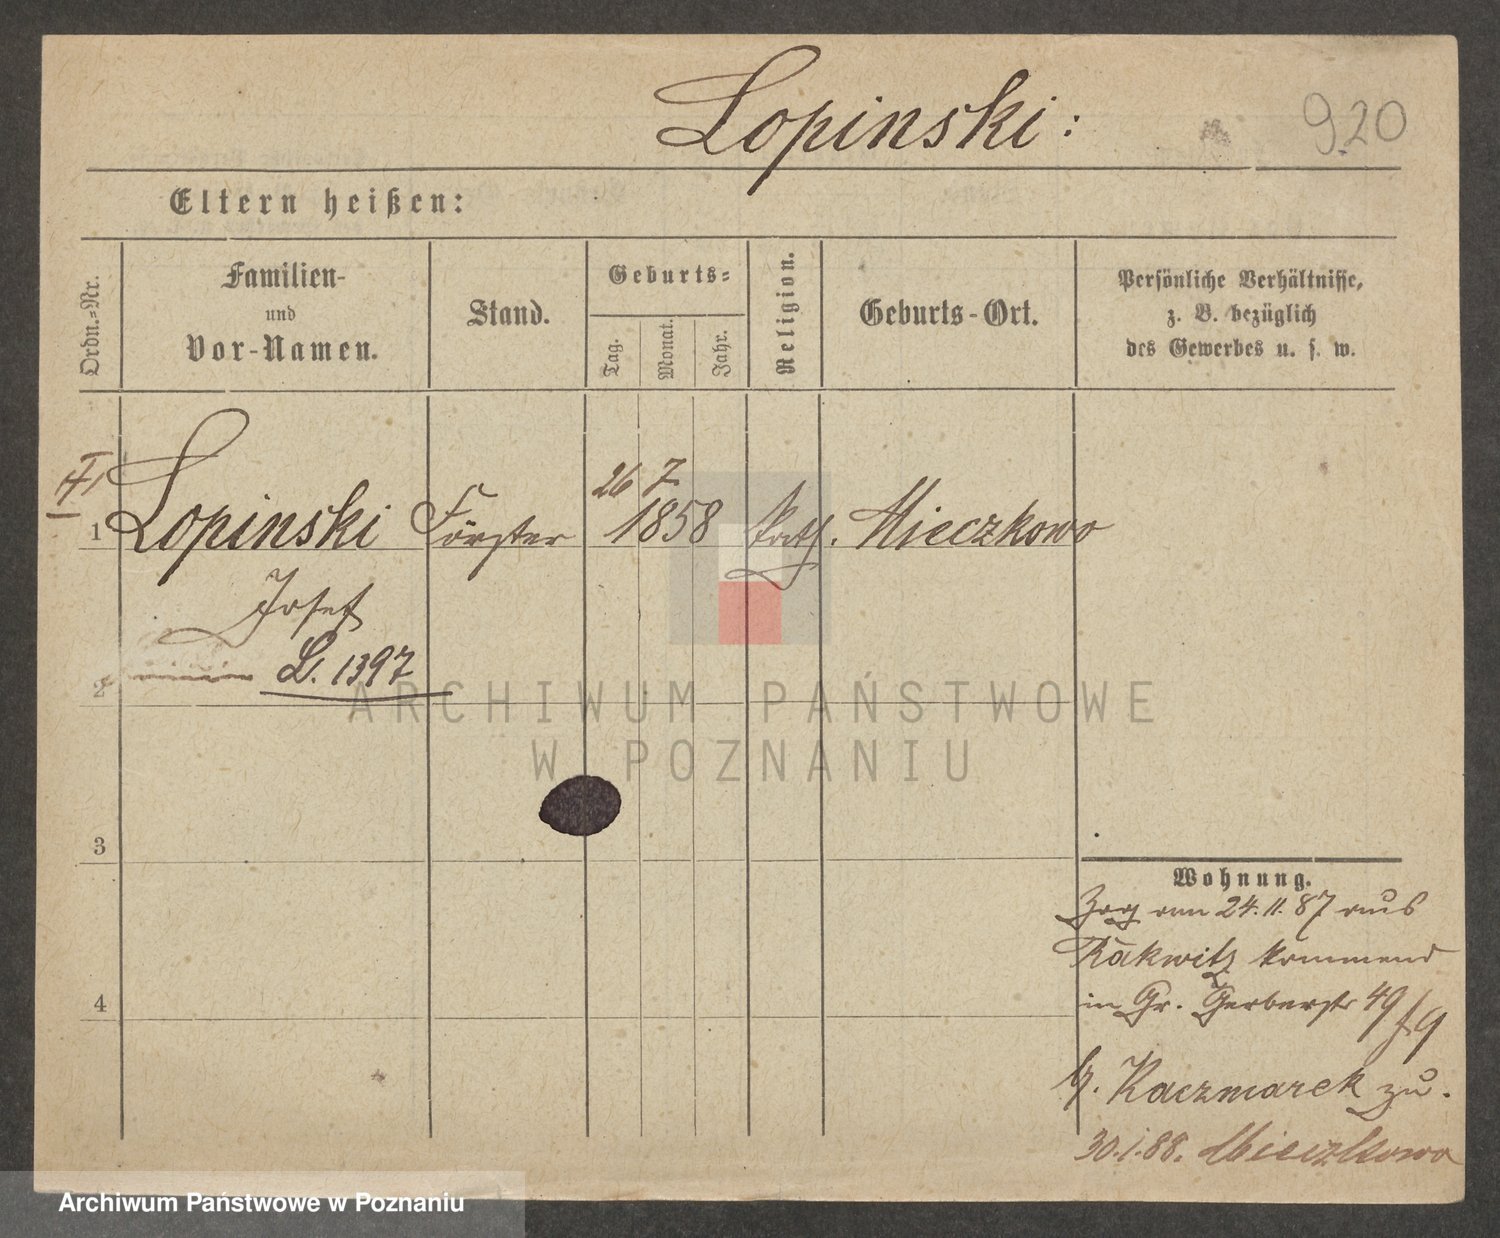 Lopinski:
920
Eltern heißen:
Ordn.-Nr.
Familien-
und
Vor-Namen.
Stand.
Geburts-
Tag.
Monat.
Jahr.
Religion.
Geburts-Ort.
Persönliche Verhältnisse,
z. B. bezüglich
des Gewerbes u. s. w.
1 Lopinski Förster 26 7 1858 kath. Mieczkowo
Josef
L. 1397
2
ARCHIWUM PAŃSTWOWE
W POZNANIU
3
Wohnung.
Zog am 24.11.87 aus
Rakwitz kommend
in Gr. Gerberstr 49/
b. Kaczmarek zu.
4
30.1.88. Mieczkowo
Archiwum Państwowe w Poznaniu